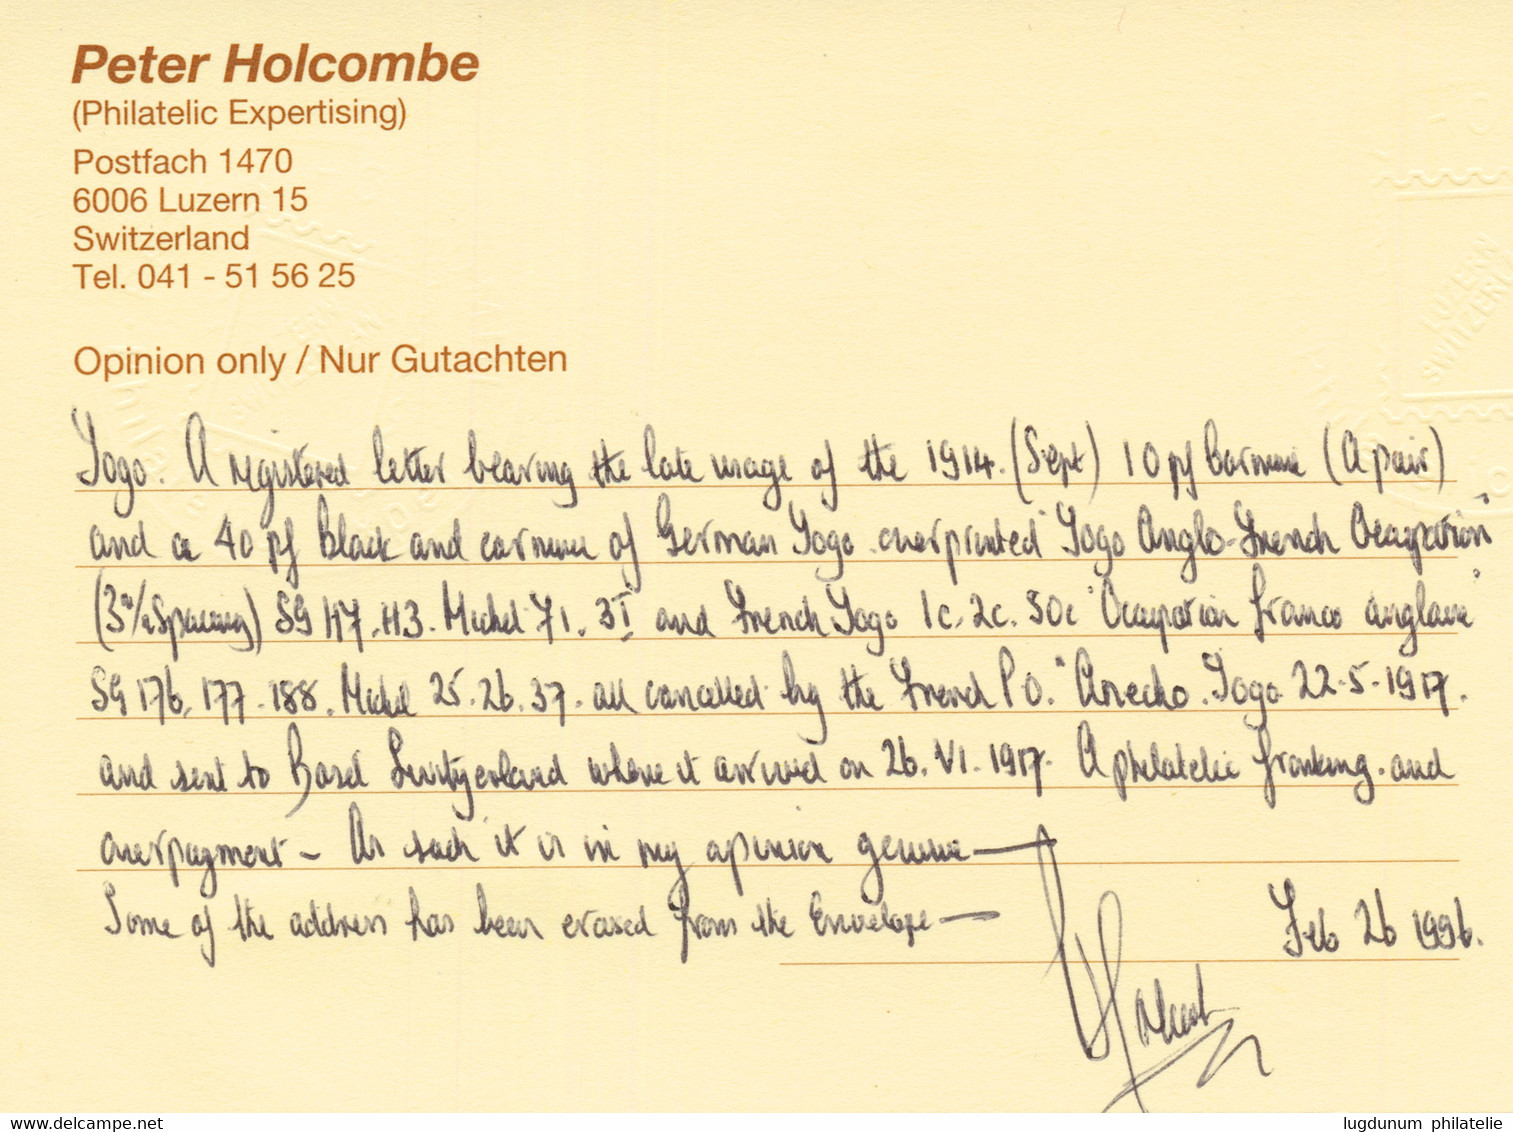 Peter Holcombe
(Philatelic Expertising)
Postfach 1470
6006 Luzern 15
Switzerland
Tel. 041 - 51 56 25
Opinion only / Nur Gutachten
Togo. A registered letter bearing the late usage of the 1914. (Sept) 10 pf Carmine (A pair)
and a 40 pf black and carmine of German Togo overprinted "Togo Anglo-French Occupation"
(3m/m Spacing) SG H7. H3. Michel 71. 3I and French Togo 1c. 2c. 50c "Occupation franco anglaise"
SG 176. 177. 188. Michel 25. 26. 37. all cancelled by the French P.O. "Anecho. Togo 22-5-1917.
and sent to Basel Switzerland where it arrived on 26. VI. 1917. A philatelic franking. and
overpayment - As such it is in my opinion genuine —
Some of the address has been erased from the Envelope —
Feb 26 1996.
P Holcombe
LUZERN
SWITZERLAND
www.delcampe.net
lugdunum philatelie